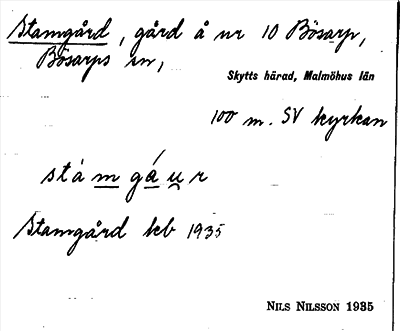 Stamgård, gård å nr 10 Bösarp,
Bösarps sn,
Skytts härad, Malmöhus län
100 m. SV kyrkan
stá m gá u r
Stamgård kb 1935
NILS NILSSON 1935